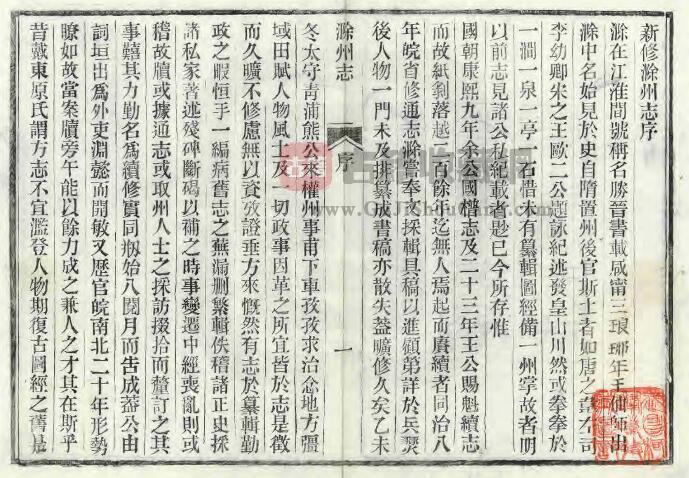 新修滁州志序
滁在江淮間號稱名勝晉書載咸甯三年琅琊王伷師出
滁中名始見於史自隋置州後官斯土者如唐之韋左司
李幼卿宋之王歐二公題詠紀述發皇山川然或拳拳於
一澗一泉一亭一石惜未有纂輯圖經備一州掌故者明
以前志見諸公私紀載者尟已今所存惟
國朝康熙九年余公國𣒅志及二十三年王公賜魁續志
而故紙剝落越二百餘年迄無人焉起而賡續者同治八
年皖省修通志滁嘗奉文採輯具稿以進顧第詳於兵燹
後人物一門未及排纂成書稿亦散失蓋曠修久矣乙未
滁州志
序
一
冬太守青浦熊公來權州事甫下車孜孜求治念地方疆
域田賦人物風土及一切政事因革之所宜皆於志是徵
而久曠不修慮無以資攷證垂方來慨然有志於纂輯勤
政之暇恒手一編病舊志之蕪漏刪繁輯佚稽諸正史採
諸私家著述殘碑斷碣以補之時事變遷中經喪亂則或
稽故牘或據通志或取州人士之採訪掇拾而釐訂之其
事囏其力勤名爲續修實同剏始八閱月而告成蓋公由
詞垣出爲外吏淵懿而開敏又歷官皖南北二十年形勢
瞭如故當案牘旁午能以餘力成之兼人之才其在斯乎
昔戴東原氏謂方志不宜濫登人物期復古圖經之舊是